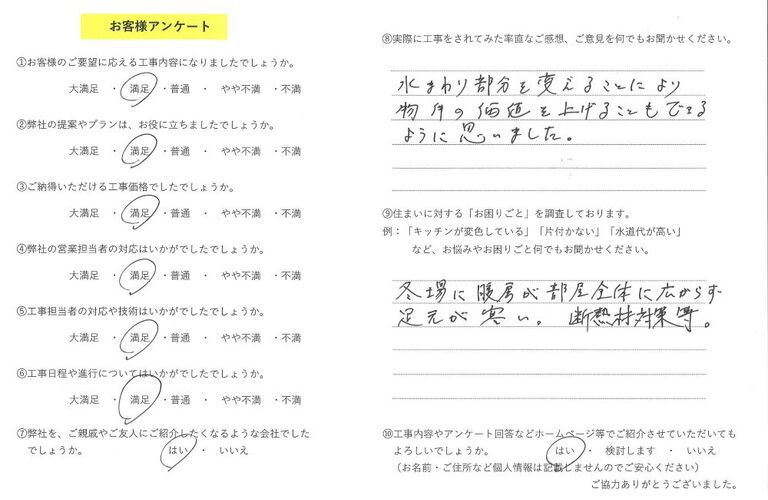 お客様アンケート
①お客様のご要望に応える工事内容になりましたでしょうか。
大満足 ・ 満足 ・普通 ・ やや不満 ・不満
②弊社の提案やプランは、お役に立ちましたでしょうか。
大満足 ・ 満足 ・普通 ・ やや不満 ・不満
③ご納得いただける工事価格でしたでしょうか。
大満足 ・ 満足 ・普通 ・ やや不満 ・不満
④弊社の営業担当者の対応はいかがでしたでしょうか。
大満足 ・ 満足 ・普通 ・ やや不満 ・不満
⑤工事担当者の対応や技術はいかがでしたでしょうか。
大満足 ・ 満足 ・普通 ・ やや不満 ・不満
⑥工事日程や進行についてはいかがでしたでしょうか。
大満足 ・ 満足 ・普通 ・ やや不満 ・不満
⑦弊社を、ご親戚やご友人にご紹介したくなるような会社でした
でしょうか。 はい ・ いいえ
⑧実際に工事をされてみた率直なご感想、ご意見を何でもお聞かせください。
水まわり部分を変えることにより
物件の価値を上げることもできる
ように思いました。
⑨住まいに対する「お困りごと」を調査しております。
例：「キッチンが変色している」「片付かない」「水道代が高い」
など、お悩みやお困りごと何でもお聞かせください。
冬場に暖房が部屋全体に広がらず
足元が寒い。 断熱材対策等。
⑩工事内容やアンケート回答などホームページ等でご紹介させていただいても
よろしいでしょうか。 はい ・ 検討します ・ いいえ
（お名前・ご住所など個人情報は記載しませんのでご安心ください）
ご協力ありがとうございました。